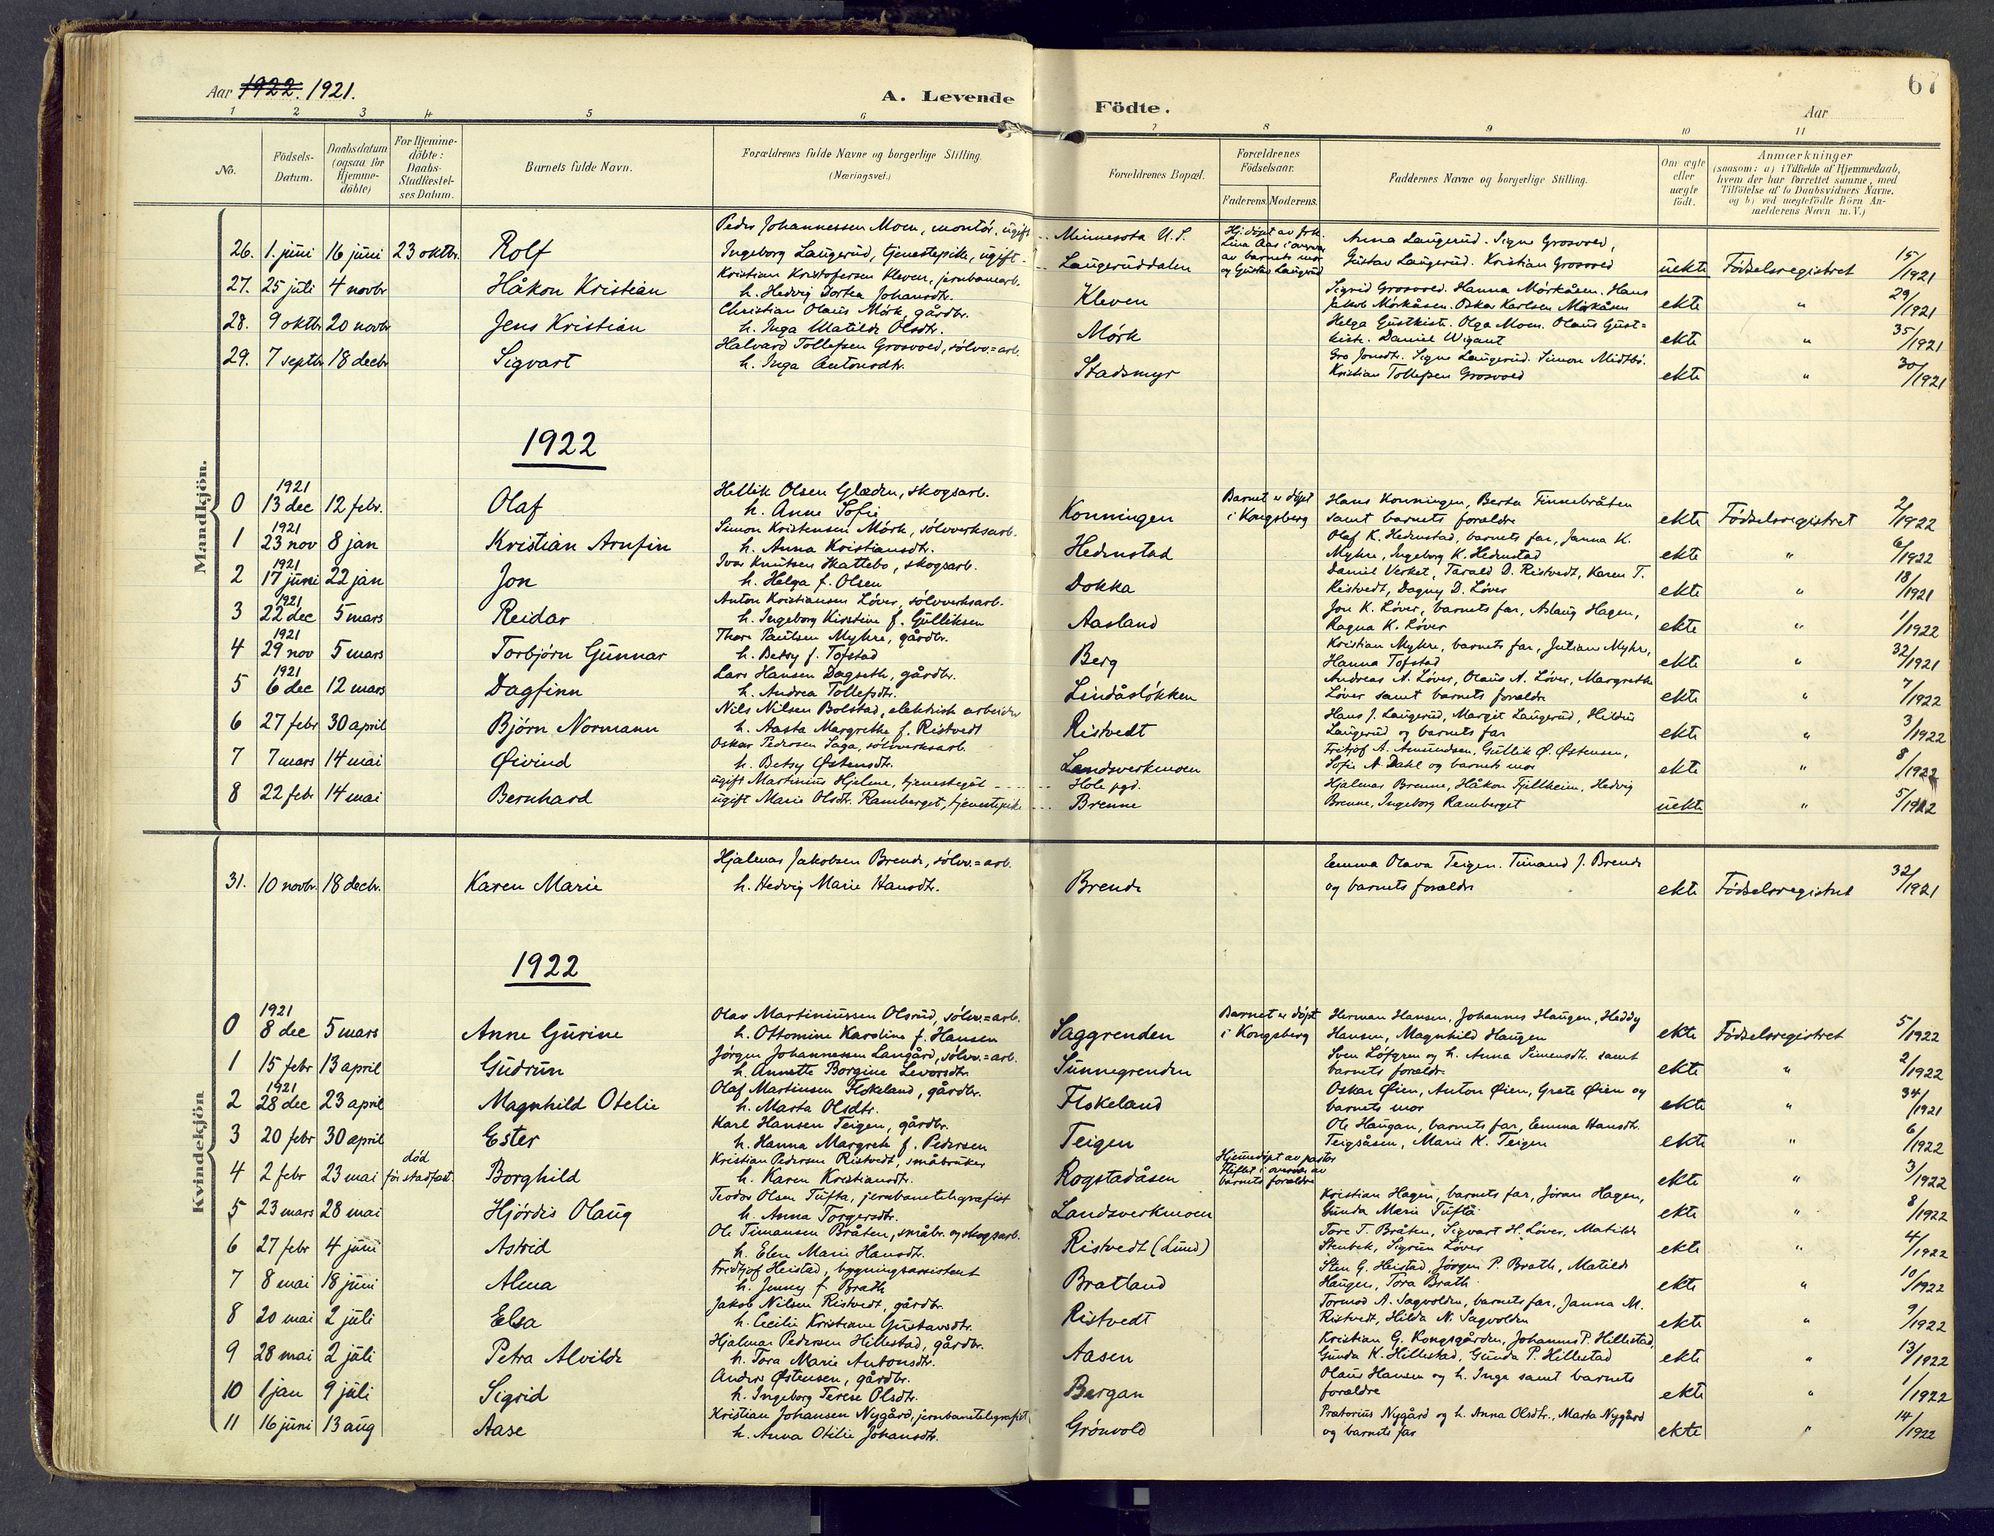 67
Aar 1922. 1921.
A. Levende Födte.
Aar
1 2 3 4 5 6 7 8 9 10 11
No.
Födsels-Datum.
Daabsdatum (ogsaa for Hjemmedöbte)
For Hjemmedöbte: Daabs-Stadfæstelses Datum.
Barnets fulde Navn.
Forældrenes fulde Navne og borgerlige Stilling. (Næringsvei.)
Forældrenes Bopæl.
Forældrenes Födselsaar.
Faderens. Moderens.
Faddernes Navne og borgerlige Stilling.
Om ægte eller uægte födt.
Anmærkninger
(saasom: a) i Tilfælde af Hjemmedaab, hvem der har forrettet samme, med Tilföielse af to Daabsvidners Navne, og b) ved uægtefödte Börn Anmelderens Navn m. V.)
Mandkjön.
26. 1. juni 16 juni 23 oktbr. Rolf
Peder Johannessen Moen, montør, ugift
Ingeborg Laugerud, tjenestepike, ugift
Minnesota U.S.
Laugeruddalen
Hj.døpt av frk. Lina Aas i overvær av barnets mor og Gustav Laugerud
Anna Laugerud. Signe Grosvold,
Gustav Laugerud. Kristian Grosvold
uekte Fødselsregistret 15/1921
27. 25 juli 4 novbr Håkon Kristian
Kristian Kristofersen Kleven, jernbanearb.
h. Hedvig Dortea Johansdtr.
Kleven
Sigrid Grosvold. Hanna Mörkåsen. Hans
Jakob Mörkåsen. Oskar Karlsen Mörkåsen
ekte " 29/1921
28. 9 oktbr 20 novbr Jens Kristian
Christian Olaus Mørk, gårdbr.
h. Inga Matilde Olsdtr.
Mørk
Helga Gustkist. Olga Moen. Olaus Gust=
kist. Daniel Wigant
ekte " 35/1921
29. 7 septbr 18 decbr Sigvart
Halvard Tollefsen Grosvold, sølvv.=arb.
h. Inga Antonsdtr.
Stadsmyr
Gro Jonsdtr. Signe Laugerud. Simon Midtbö.
Kristian Tollefsen Grosvold
ekte " 30/1921
1922
0 1921 13 dec 12 febr. Olaf
Hellik Olsen Glæden, skogsarb.
h. Anne Sofie
Konningen
Barnet er døpt i Kongsberg
Hans Konningen, Berta Finnebråten
samt barnets foreldre
ekte Fødselsregistret 2/1922
1 1921 23 nov 8 jan Kristian Arnfin
Simon Kristensen Mörk, sölvverksarb.
h. Anna Kristiansdtr.
Hedenstad
Olaf K. Hedenstad, barnets far, Janna K.
Myhre, Ingeborg K. Hedenstad
ekte " 6/1922
2 1921 17 juni 22 jan Jon
Ivar Knutsen Skattebo, skogsarb.
h. Helga f. Olsen
Dokka
Daniel Verket, Tarald D. Ristvedt, Karen T.
Ristvedt, Dagny D. Löver
ekte " 18/1921
3 1921 22 dec 5 mars Reidar
Anton Kristiansen Löver, sölvverksarb.
h. Ingeborg Kirstine f. Gulliksen
Aasland
Jon K. Löver, barnets far, Aslaug Hagen,
Ragna K. Löver
ekte " 1/1922
4 1921 29 nov 5 mars Torbjörn Gunnar
Thore Paulsen Myhre, gårdbr.
h. Betsy f. Tofstad
Berg
Kristian Myhre, barnets far, Julian Myhre,
Hanna Tofstad
ekte " 32/1921
5 1921 6 dec 12 mars Dagfinn
Lars Hansen Dagseth, gårdbr.
h. Andrea Tollefsdtr.
Lindåsløkken
Andreas A. Löver, Olaus A. Löver, Margrethe
Löver samt barnets foreldre
ekte " 7/1922
6 27 febr 30 april Björn Normann
Nils Nilsen Bolstad, elektrisk arbeider
h. Aasta Margrethe f. Ristvedt
Ristvedt
Hans J. Laugerud, Margit Laugerud, Hildur
Laugerud og barnets far
ekte " 3/1922
7 7 mars 14 mai Øivind
Oskar Pedersen Saga, sölvverksarb.
h. Betsy Östensdtr.
Landsverkmoen
Fritjof A. Amundsen, Gullik Ø. Østensen,
Sofie A Dahl og barnets mor
ekte " 8/1922
8 22 febr 14 mai Bernhard
ugift Martinius Hjelme, tjenestegut
ugift Marie Olsdtr. Ramberget, tjenestepike
Hole pgd.
Brenne
Hjalmar Brenne, Håkon Fjellheim, Hedvig
Brenne, Ingeborg Ramberget
uekte " 5/1922
Kvindekjön
31. 10 novbr. 18 decbr. Karen Marie
Hjalmar Jakobsen Brende, sølvv.=arb.
h. Hedvig Marie Hansdtr.
Brende
Emma Olava Teigen. Timand J. Brende
og barnets foreldre
ekte Fødselsregistret 32/1921
1922
0 1921 8 dec 5 mars Anne Gurine
Olav Martiniussen Olsrud, sølvv.=arb.
h. Ottomine Karoline f. Hansen
Saggrenden
Barnet er döpt i Kongsberg
Herman Hansen, Johannes Haugen, Heddy
Hansen, Magnhild Haugen
ekte Fødselsregistret 5/1922
1 15 febr 13 april Gudrun
Jörgen Johannessen Langård, sølvv.=arb.
h. Annette Borgine Levorsdtr.
Sunnegrenden
Sven Löfgren og h. Anna Simensdtr. samt
barnets foreldre
ekte " 2/1922
2 1921 28 dec 23 april Magnhild Otelie
Olaf Martinsen Flokeland, gårdbr.
h. Marta Olsdtr.
Flskeland
Oskar Øien, Anton Øien, Grete Øien og
barnets mor
ekte " 34/1921
3 20 febr 30 april Ester
Karl Hansen Teigen, gårdbr.
h. Hanna Margrete f. Pedersen
Teigen
Ole Haugan, barnets far, Emma Hansdtr.
Teigsåsen, Marie K. Teigen
ekte " 6/1922
4 2 febr 23 mai död för stadfæst. Borghild
Kristian Pedersen Ristvedt, småbruker
h. Karen Kristiansdtr.
Rogstadåsen
Hjemmedöpt av pastor Fliflet i overvær av barnets foreldre
ekte " 3/1922
5 23 mars 28 mai Hjördis Olaug
Teodor Olsen Tufta, jernbanetelegrafist
h. Anna Torgersdtr.
Landsverkmoen
Kristian Hagen, barnets far, Jöran Hagen,
Gunda Marie Tufta
ekte " 8/1922
6 27 febr 4 juni Astrid
Ole Timansen Bråten, småbr. og skogsarb.
h. Elen Marie Hansdtr.
Ristvedt (Lund)
Tore T. Bråten, Sigvart H. Löver, Matilde
Stenbek, Sigrun Löver
ekte " 4/1922
7 8 mai 18 juni Alma
Fredtjof Heistad, bygningsassistent
h. Jenny f. Brath
Bratland
Sten G. Heistad, Jörgen P. Brath, Matilde
Haugen, Tora Brath
ekte " 10/1922
8 20 mai 2 juli Elsa
Jakob Nilsen Ristvedt, gårdbr.
h. Cecilie Kristiane Gustavsdtr.
Ristvedt
Tormod A. Sagvolden, barnets far, Janna M.
Ristvedt, Hilda N. Sagvolden
ekte " 9/1922
9 28 mai 2 juli Petra Alvilde
Hjalmar Pedersen Hillestad, gårdbr.
h. Tora Marie Antonsdtr.
Aasen
Kristian G. Kongsgården, Johannes P. Hillestad,
Gunda K. Hillestad, Gunda P. Hillestad
ekte " 13/1922
10 1 jan 9 juli Sigrid
Anders Östensen, gårdbr.
h. Ingeborg Terese Olsdtr.
Bergan
Olaus Hansen og h. Inga samt barnets
foreldre
ekte " 1/1922
11 16 juni 13 aug Aase
Kristian Johansen Nygård, jernbanetelegrafist
h. Anna Otilie Johansdtr.
Grönvold
Prætorius Nygård og h. Anna Olsdtr., Marta Nygård
og barnets far
ekte " 14/1922